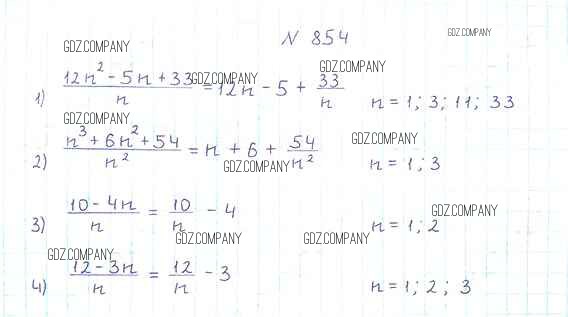 N 854
GDZ.COMPANY
GDZ.COMPANY
GDZ.COMPANY
GDZ.COMPANY
1) (12n² - 5n + 33)/n = 12n - 5 + 33/n n = 1; 3; 11; 33
GDZ.COMPANY
GDZ.COMPANY
2) (n³ + 6n² + 54)/n² = n + 6 + 54/n² n = 1; 3
GDZ.COMPANY
3) (10 - 4n)/n = 10/n - 4 n = 1; 2
GDZ.COMPANY
GDZ.COMPANY
GDZ.COMPANY
GDZ.COMPANY
4) (12 - 3n)/n = 12/n - 3 n = 1; 2; 3